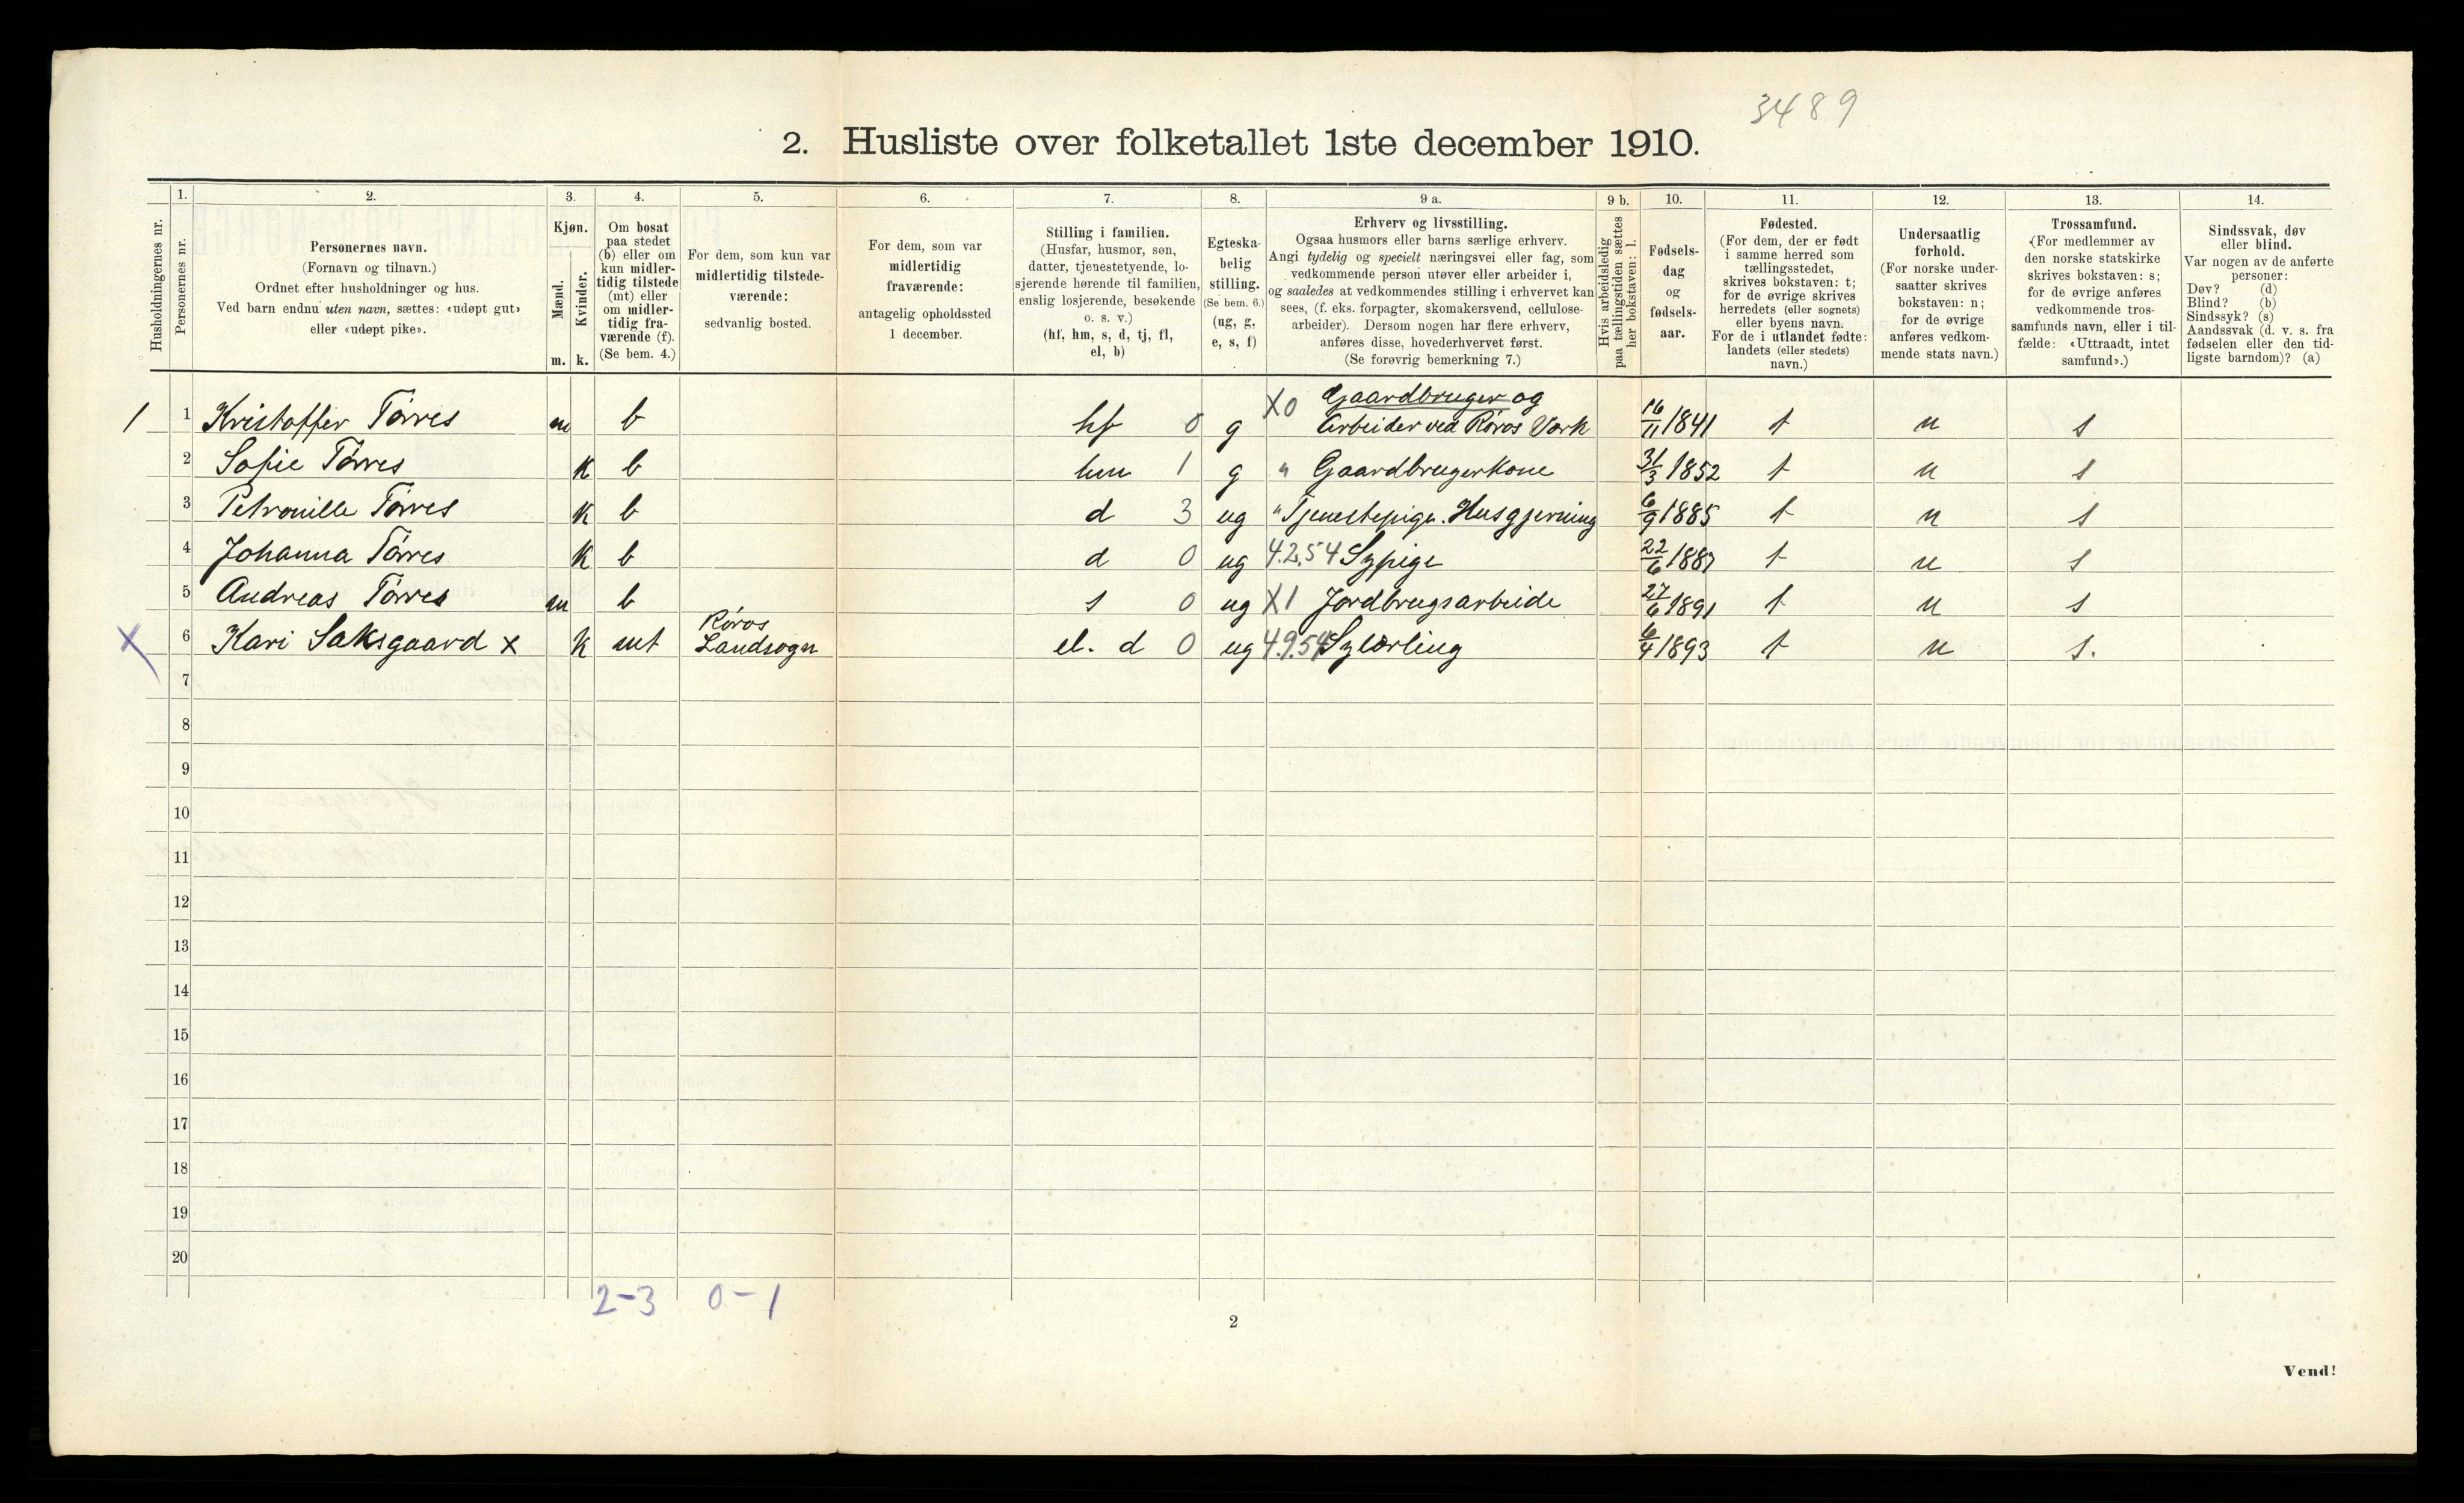 3489
2. Husliste over folketallet 1ste december 1910.
Husholdningernes nr.
1.
Personernes nr.
2.
Personernes navn.
(Fornavn og tilnavn.)
Ordnet efter husholdninger og hus.
Ved barn endnu uten navn, sættes: «udøpt gut»
eller «udøpt pike».
3.
Kjøn.
Mænd.
Kvinder.
m. k.
4.
Om bosat
paa stedet
(b) eller om
kun midler-
tidig tilstede
(mt) eller
om midler-
tidig fra-
værende (f).
(Se bem. 4.)
5.
For dem, som kun var
midlertidig tilstede-
værende:
sedvanlig bosted.
6.
For dem, som var
midlertidig
fraværende:
antagelig opholdssted
1 december.
7.
Stilling i familien.
(Husfar, husmor, søn,
datter, tjenestetyende, lo-
sjerende hørende til familien,
enslig losjerende, besøkende
o. s. v.)
(hf, hm, s, d, tj, fl,
el, b)
8.
Egteska-
belig
stilling.
(Se bem. 6.)
(ug, g,
e, s, f)
9 a.
Erhverv og livsstilling.
Ogsaa husmors eller barns særlige erhverv.
Angi tydelig og specielt næringsvei eller fag, som
vedkommende person utøver eller arbeider i,
og saaledes at vedkommendes stilling i erhvervet kan
sees, (f. eks. forpagter, skomakersvend, cellulose-
arbeider). Dersom nogen har flere erhverv,
anføres disse, hovederhvervet først.
(Se forøvrig bemerkning 7.)
9 b.
Hvis arbeidsledig
paa tællingstiden sættes
her bokstaven: l.
10.
Fødsels-
dag
og
fødsels-
aar.
11.
Fødested.
(For dem, der er født
i samme herred som
tællingsstedet,
skrives bokstaven: t;
for de øvrige skrives
herredets (eller sognets)
eller byens navn.
For de i utlandet fødte:
landets (eller stedets)
navn.)
12.
Undersaatlig
forhold.
(For norske under-
saatter skrives
bokstaven: n;
for de øvrige
anføres vedkom-
mende stats navn.)
13.
Trossamfund.
(For medlemmer av
den norske statskirke
skrives bokstaven: s;
for de øvrige anføres
vedkommende tros-
samfunds navn, eller i til-
fælde: «Uttraadt, intet
samfund».)
14.
Sindssvak, døv
eller blind.
Var nogen av de anførte
personer:
Døv? (d)
Blind? (b)
Sindssyk? (s)
Aandssvak (d. v. s. fra
fødselen eller den tid-
ligste barndom)? (a)
1 1 Kristoffer Tørres m b hf 0 g X0 Gaardbruger og
Arbeider ved Röros Værk 16/11 1841 t n s
2 Sofie Tørres k b hm 1 g " Gaardbrugerkone 31/3 1852 t n s
3 Petronille Tørres k b d 3 ug " Tjenestepige. Husgjerning 6/9 1885 t n s
4 Johanna Tørres k b d 0 ug 4.2.54 Sypige 22/6 1887 t n s
5 Andreas Tørres m b s 0 ug X1 Jordbrugsarbeide 27/6 1891 t n s
X 6 Kari Saksgaard x k mt Röros
Landsogn el. d 0 ug 4.9.54 Sylærling 6/4 1893 t n s.
7
8
9
10
11
12
13
14
15
16
17
18
19
20
2-3 0-1
2
Vend!